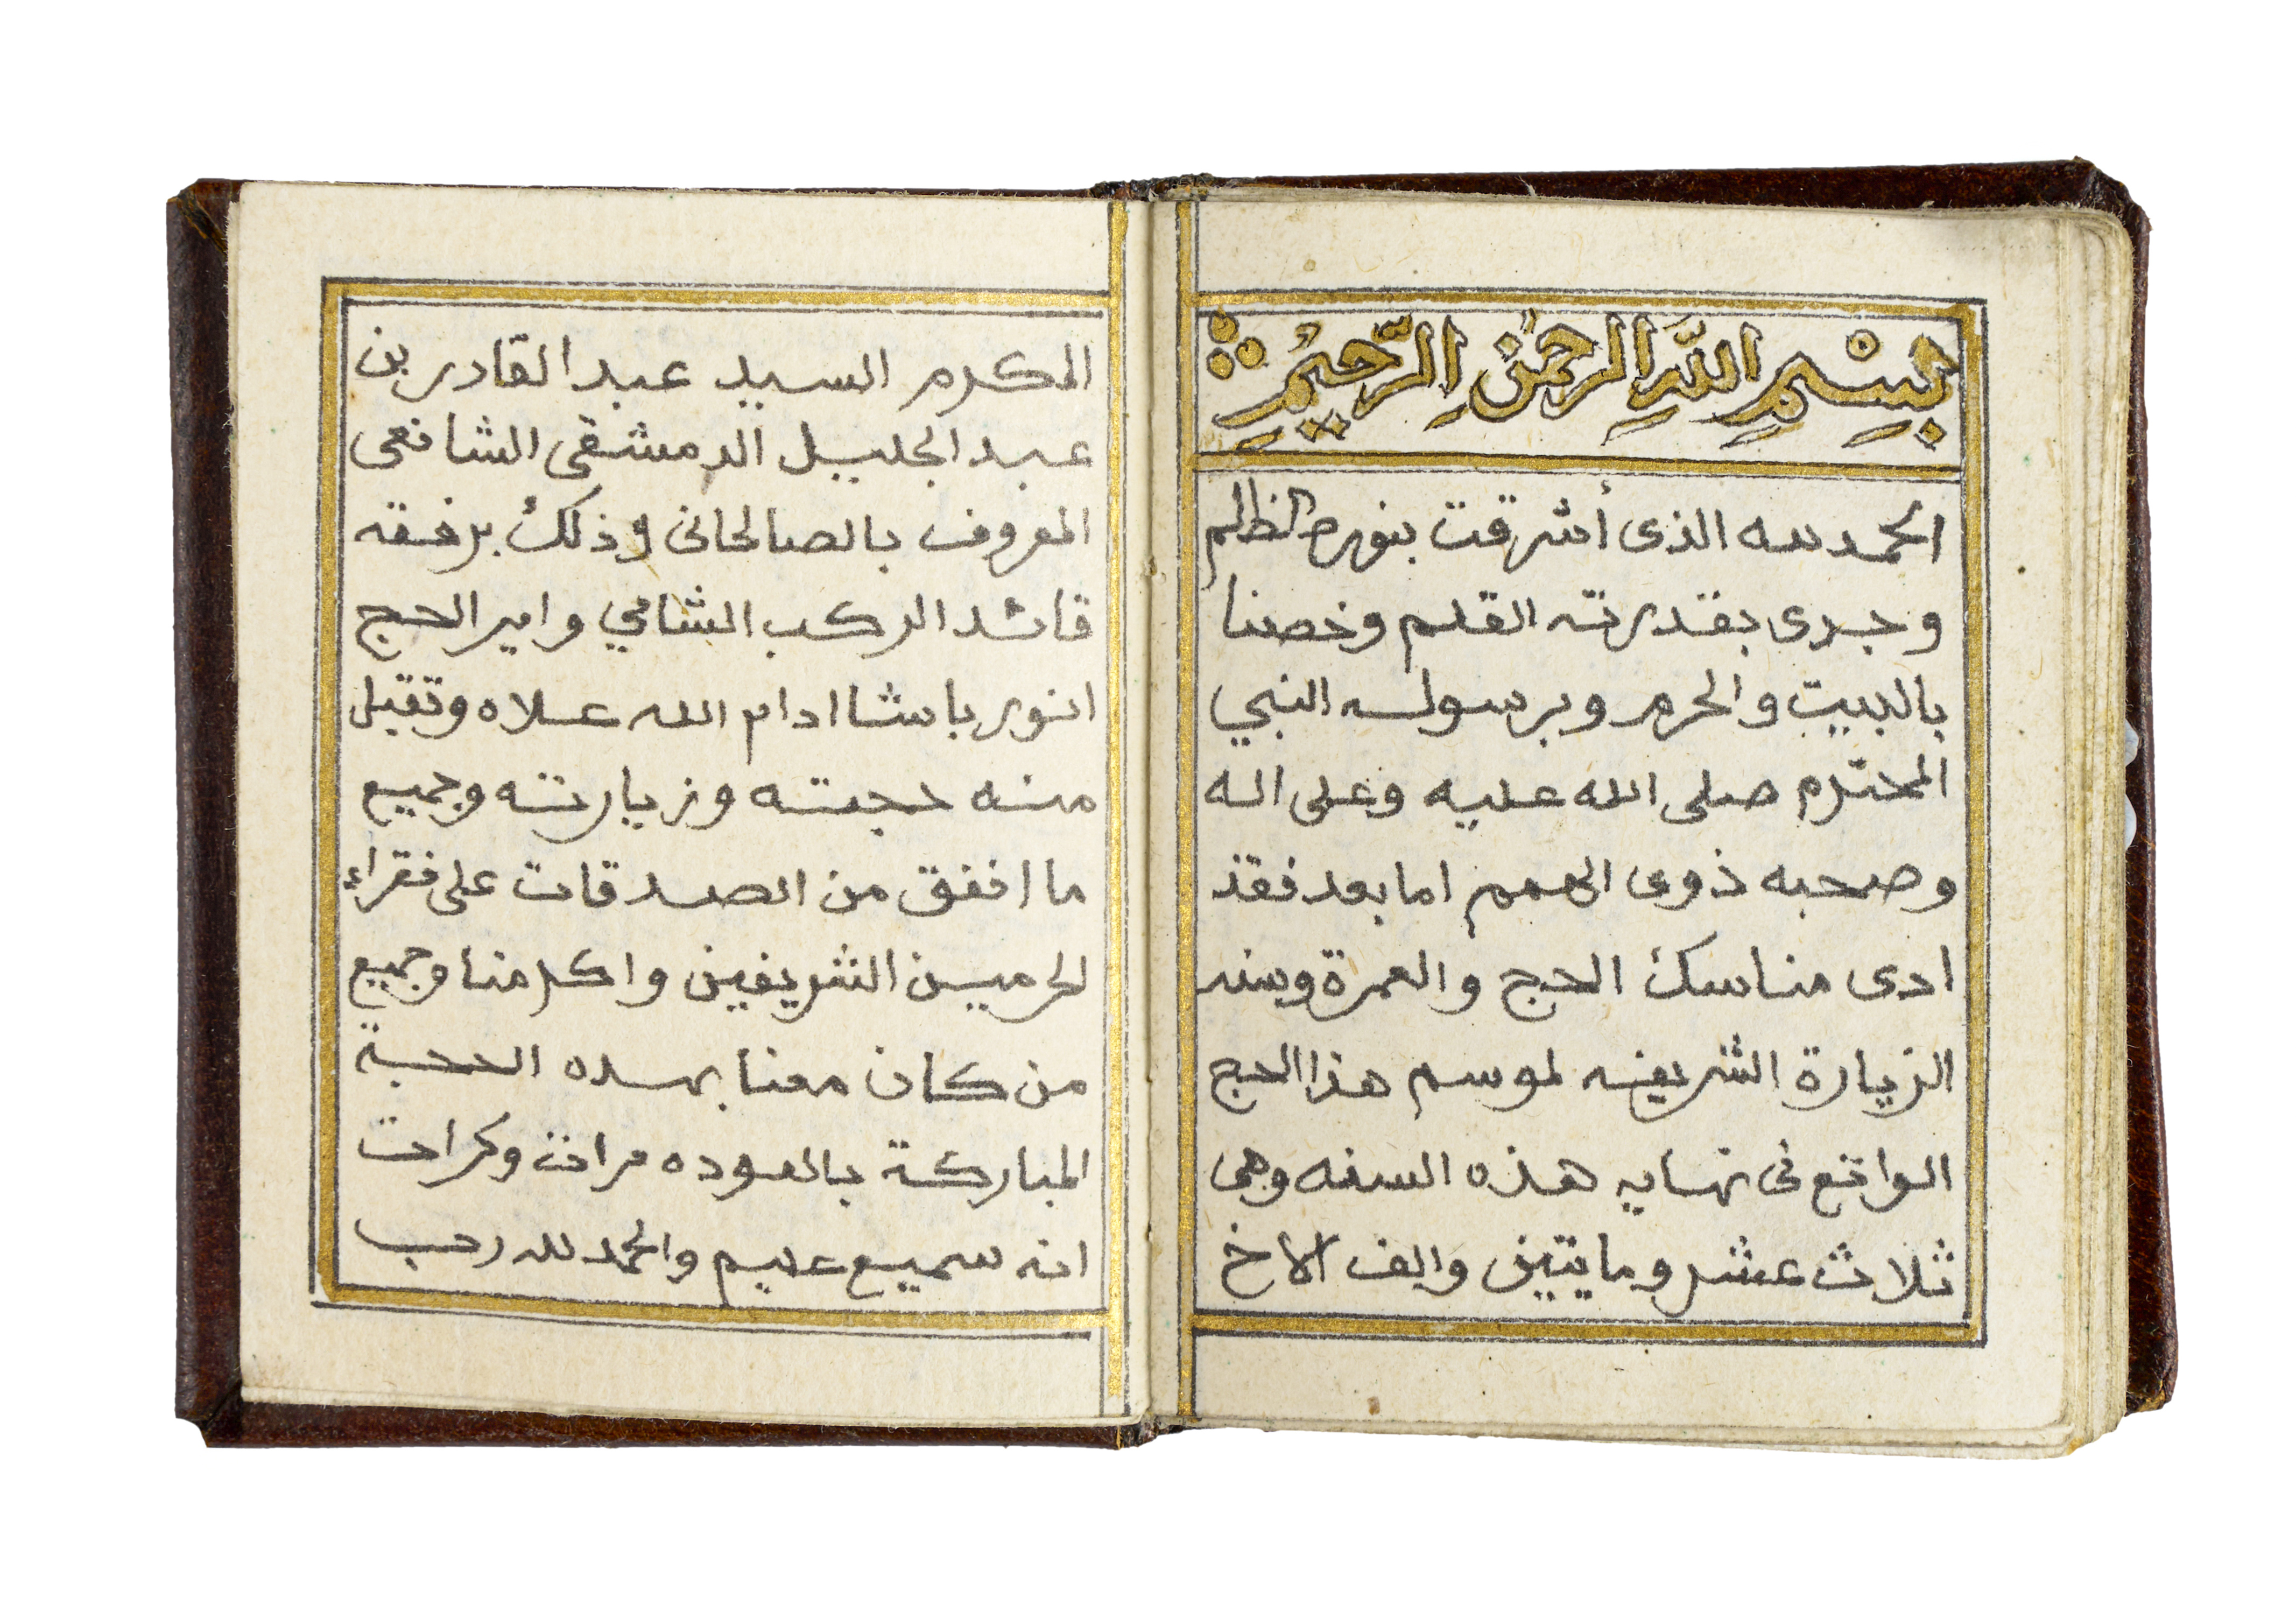 بِسْمِ اللَّهِ الرحمٰنِ الرَّحِيمِ
الحمد لله الذى أشرقت بنوره الظالم
وجرى بقدرته القلم وخصنا
بالبيت والحرم وبرسوله النبي
المحترم صلى الله عليه وعلى اله
وصحبه ذوى الهمم اما بعد فقد
ادى مناسك الحج والعمرة وسنه
الزيارة الشريفه لموسم هذا الحج
الواقع فى نهايه هذه السنه وهى
ثلاث عشر ومايتين والف الاخ
المكرم السيد عبد القادر بن
عبد الجليل الدمشقى الشافعى
المعروف بالصالحانى وذلك برفقه
قائد الركب الشامي وامير الحج
انور باشا ادام الله علاه وتقبل
منه حجته وزيارته وجميع
ما انفق من الصدقات على فقراء
لحرمين الشريفين واكرمنا وجميع
من كان معنا بهده الحجة
المباركة بالعوده مرات وكرات
انه سميع عليم والحمد لله رب